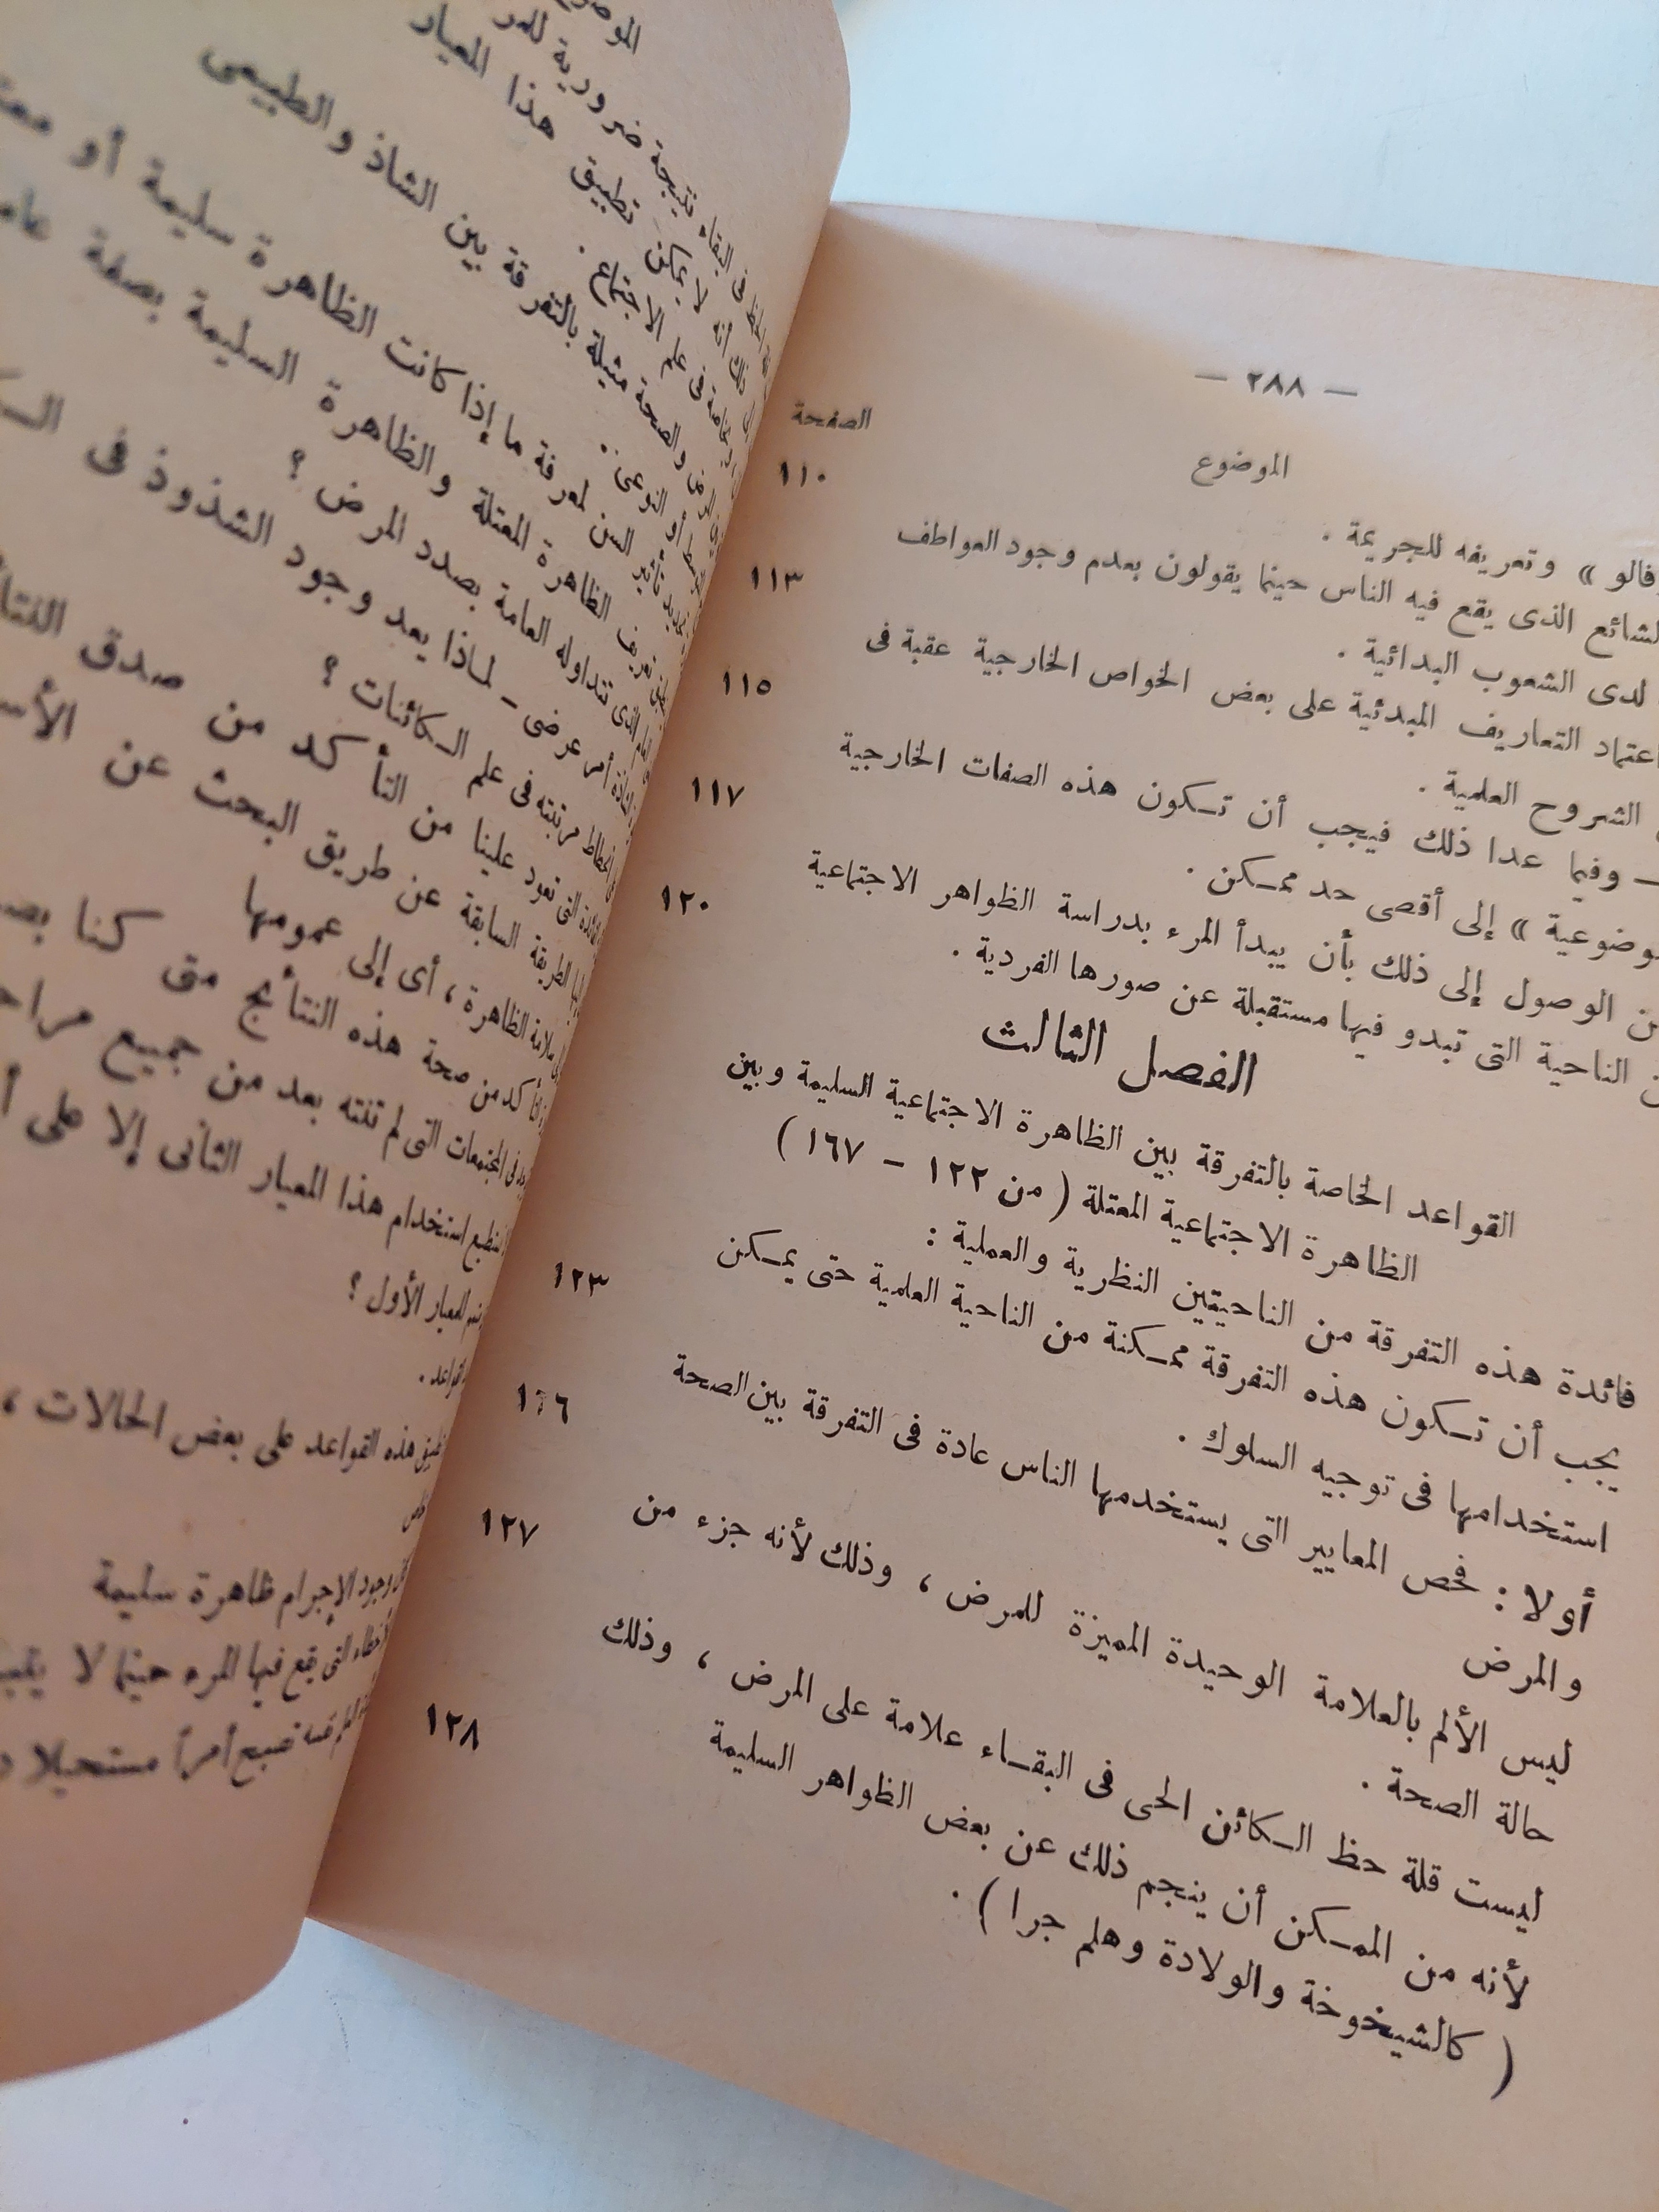 — ٢٨٨ —
الموضوع
الصفحة
فالو » وتعريفه للجريمة . ١١٠
الشائع الذى يقع فيه الناس حينما يقولون بعدم وجود العواطف ١١٣
لدى الشعوب البدائية .
اعتماد التعاريف المبدئية على بعض الخواص الخارجية عقبة فى ١١٥
الشروح العلمية .
وفيما عدا ذلك فيجب أن تكون هذه الصفات الخارجية ١١٧
موضوعية » إلى أقصى حد ممكن .
الوصول إلى ذلك بأن يبدأ المرء بدراسة الظواهر الاجتماعية ١٢٠
الناحية التى تبدو فيها مستقبلة عن صورها الفردية .
الفصل الثالث
القواعد الخاصة بالتفرقة بين الظاهرة الاجتماعية السليمة وبين
الظاهرة الاجتماعية المعتلة ( من ١٢٢ – ١٦٧ )
فائدة هذه التفرقة من الناحيتين النظرية والعملية :
يجب أن تكون هذه التفرقة ممكنة من الناحية العلمية حتى يمكن ١٢٣
استخدامها فى توجيه السلوك .
أولا : فحص المعايير التى يستخدمها الناس عادة فى التفرقة بين الصحة ١٢٦
والمرض
ليس الألم بالعلامة الوحيدة المميزة للمرض ، وذلك لأنه جزء من ١٢٧
حالة الصحة .
ليست قلة حظ الكائن الحى فى البقاء علامة على المرض ، وذلك
لأنه من الممكن أن ينجم ذلك عن بعض الظواهر السليمة ١٢٨
( كالشيخوخة والولادة وهلم جرا ) .
فى البقاء نتيجة ضرورية
أنه لا يمكن تطبيق هذا المعيار
فى علم الاجتماع .
والصحة مثيلة بالتفرقة بين الشاذ والطبيعى
أو النوعى .
تأثير السن لمعرفة ما إذا كانت الظاهرة سليمة أو
تعريف الظاهرة المعتلة والظاهرة السليمة بصفة
الذى تتداوله العامة بصدد المرض ؟
أمر عرضى – لماذا يعد وجود الشذوذ فى
مرتبته فى علم الكائنات ؟
التى تعود علينا من التأكد من صدق
الطريقة السابقة عن طريق البحث عن
الظاهرة ، أى إلى عمومها
من صحة هذه النتائج متى كنا
المجتمعات التى لم تنته بعد من جميع
استخدام هذا المعيار الثانى إلا على
المعيار الأول ؟
هذه القواعد على بعض الحالات ،
وجود الإجرام ظاهرة سليمة
التى يقع فيها المرء حينما لا
تصبح أمراً مستحيلا